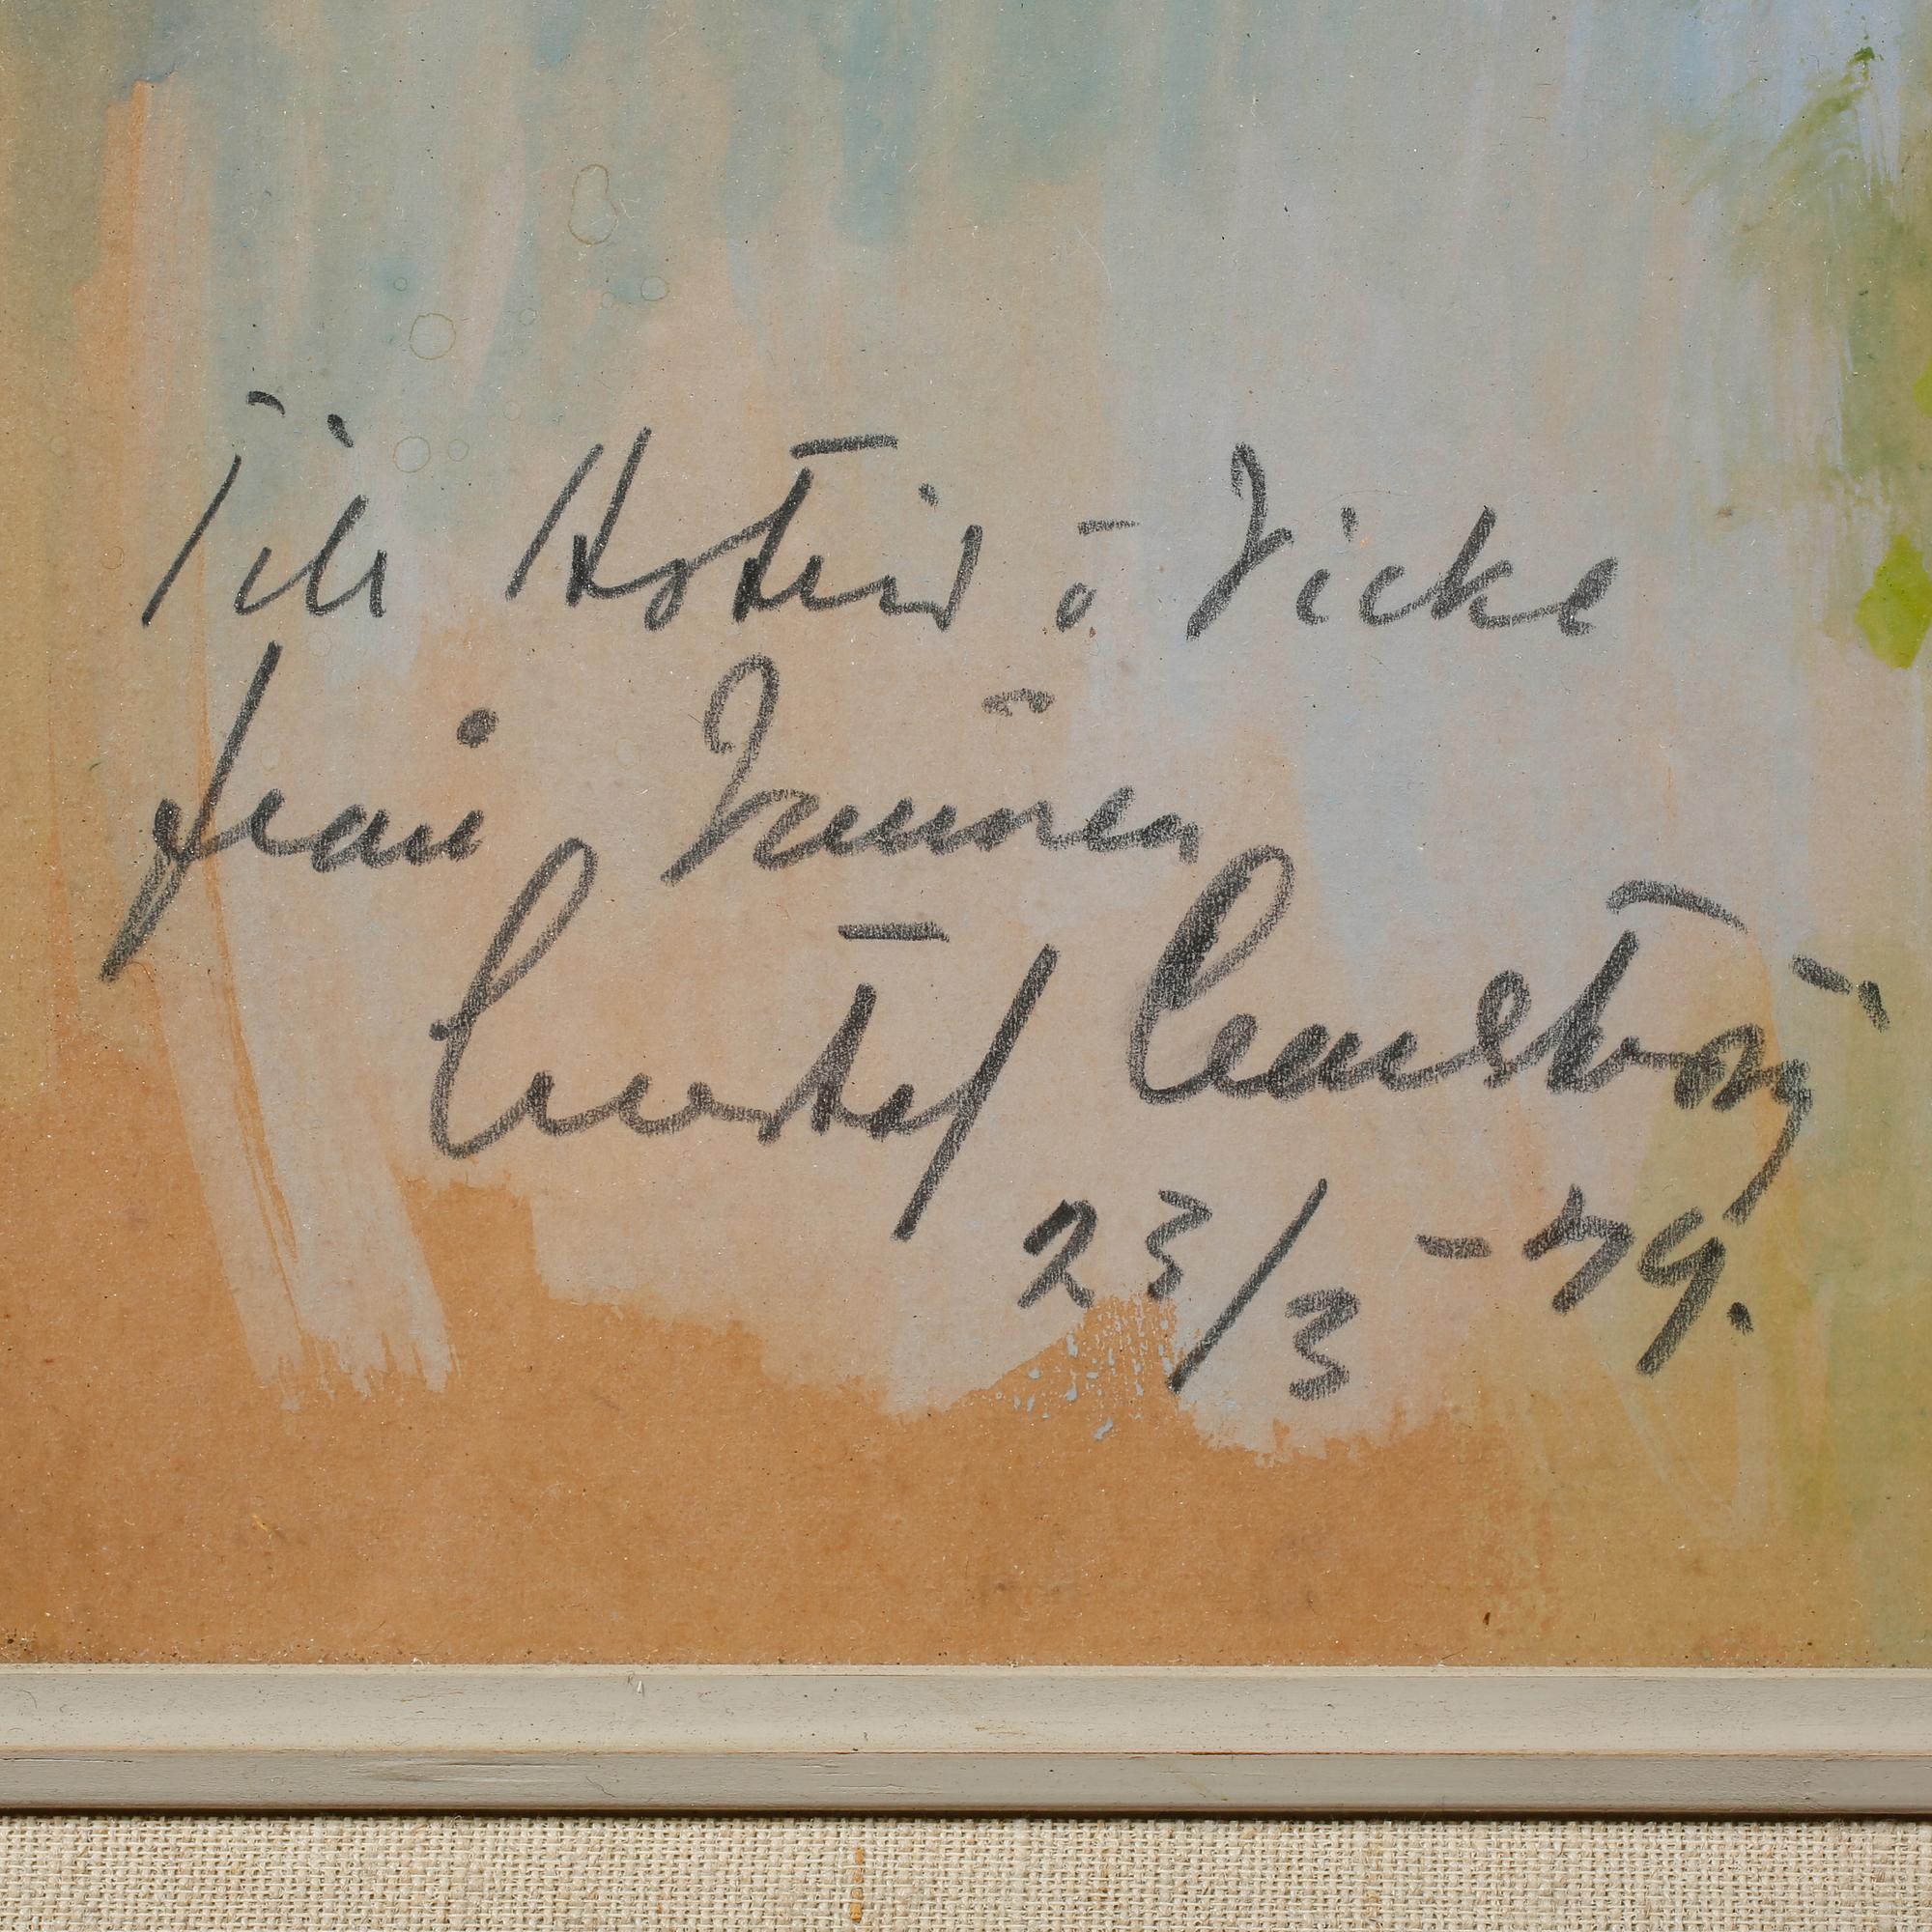 Till Astrid o Vicke
från Vännen
Gustaf Carlström
23/3 -79.